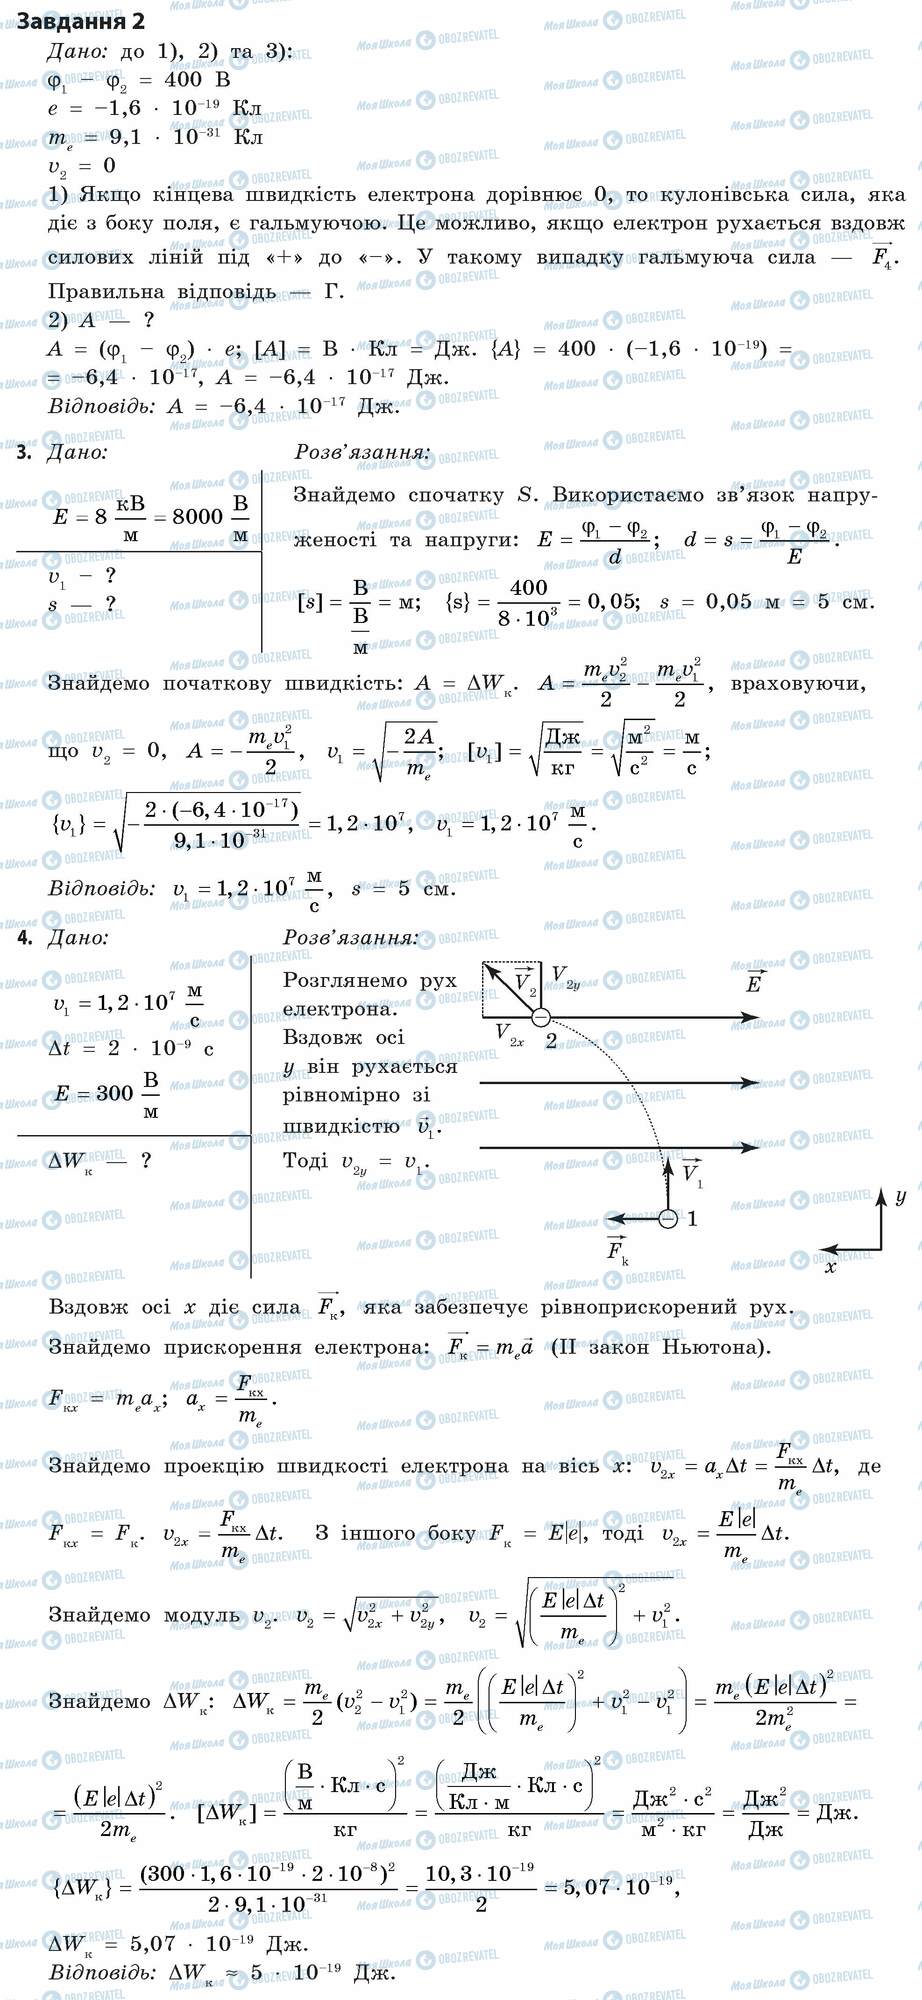 Завдання 2
Дано: до 1), 2) та 3):
φ₁ − φ₂ = 400 В
e = −1,6 · 10⁻¹⁹ Кл
mₑ = 9,1 · 10⁻³¹ Кл
v₂ = 0
1) Якщо кінцева швидкість електрона дорівнює 0, то кулонівська сила, яка
діє з боку поля, є гальмуючою. Це можливо, якщо електрон рухається вздовж
силових ліній під «+» до «−». У такому випадку гальмуюча сила — F⃗₄.
Правильна відповідь — Г.
2) A — ?
A = (φ₁ − φ₂) · e; [A] = В · Кл = Дж. {A} = 400 · (−1,6 · 10⁻¹⁹) =
= −6,4 · 10⁻¹⁷, A = −6,4 · 10⁻¹⁷ Дж.
Відповідь: A = −6,4 · 10⁻¹⁷ Дж.
3. Дано: Розв’язання:
E = 8 кВ/м = 8000 В/м
v₁ − ?
s — ?
Знайдемо спочатку S. Використаємо зв’язок напру-
женості та напруги: E = (φ₁ − φ₂)/d; d = s = (φ₁ − φ₂)/E.
[s] = В/(В/м) = м; {s} = 400/(8 · 10³) = 0,05; s = 0,05 м = 5 см.
Знайдемо початкову швидкість: A = ΔWк. A = mₑv₂²/2 − mₑv₁²/2, враховуючи,
що v₂ = 0, A = −mₑv₁²/2, v₁ = √(−2A/mₑ); [v₁] = √(Дж/кг) = √(м²/с²) = м/с;
{v₁} = √(−2 · (−6,4 · 10⁻¹⁷)/(9,1 · 10⁻³¹)) = 1,2 · 10⁷, v₁ = 1,2 · 10⁷ м/с.
Відповідь: v₁ = 1,2 · 10⁷ м/с, s = 5 см.
4. Дано: Розв’язання:
v₁ = 1,2 · 10⁷ м/с
Δt = 2 · 10⁻⁹ с
E = 300 В/м
ΔWк — ?
Розглянемо рух
електрона.
Вздовж осі
y він рухається
рівномірно зі
швидкістю v⃗₁.
Тоді v₂y = v₁.
V⃗₂ V₂y E⃗
V₂x − 2
V⃗₁
− 1
F⃗k
y
x
Вздовж осі x діє сила F⃗к, яка забезпечує рівноприскорений рух.
Знайдемо прискорення електрона: F⃗к = mₑa⃗ (II закон Ньютона).
Fкx = mₑaₓ; aₓ = Fкx/mₑ.
Знайдемо проекцію швидкості електрона на вісь x: v₂x = aₓΔt = (Fкx/mₑ)Δt, де
Fкx = Fк. v₂x = (Fкx/mₑ)Δt. З іншого боку Fк = E|e|, тоді v₂x = (E|e|/mₑ)Δt.
Знайдемо модуль v₂. v₂ = √(v₂x² + v₂y²), v₂ = √((E|e|Δt/mₑ)² + v₁²).
Знайдемо ΔWк: ΔWк = mₑ/2 (v₂² − v₁²) = mₑ/2 ((E|e|Δt/mₑ)² + v₁² − v₁²) = mₑ(E|e|Δt)²/(2mₑ²) =
= (E|e|Δt)²/(2mₑ). [ΔWк] = (В/м · Кл · с)²/кг = (Дж/(Кл · м) · Кл · с)²/кг = Дж² · с²/(м² · кг) = Дж²/Дж = Дж.
{ΔWк} = (300 · 1,6 · 10⁻¹⁹ · 2 · 10⁻⁸)²/(2 · 9,1 · 10⁻³¹) = 10,3 · 10⁻¹⁹/2 = 5,07 · 10⁻¹⁹,
ΔWк = 5,07 · 10⁻¹⁹ Дж.
Відповідь: ΔWк ≈ 5 · 10⁻¹⁹ Дж.